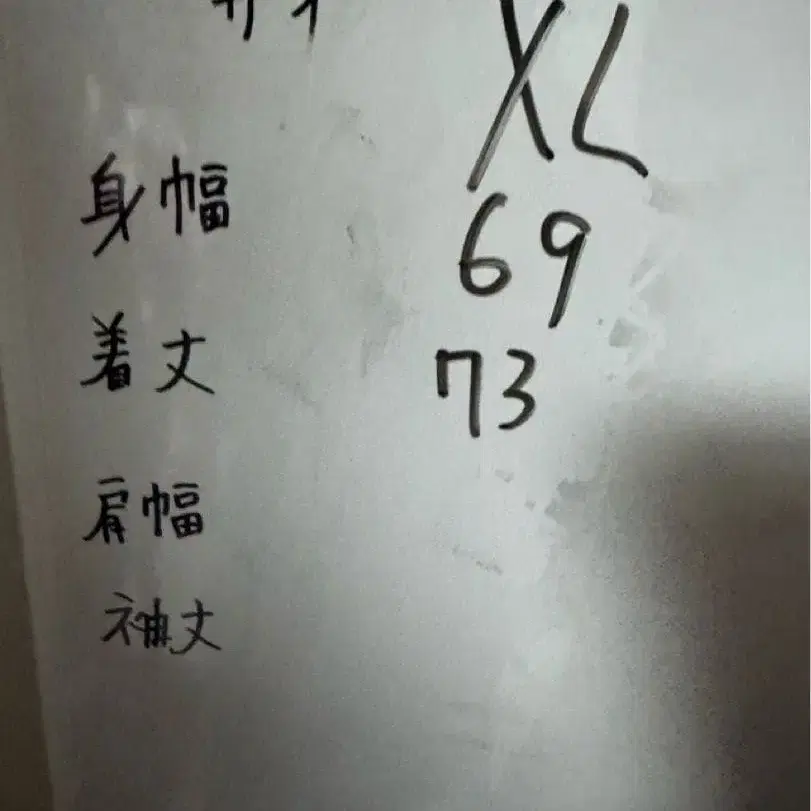 XL
身幅 69
着丈 73
肩幅
袖丈